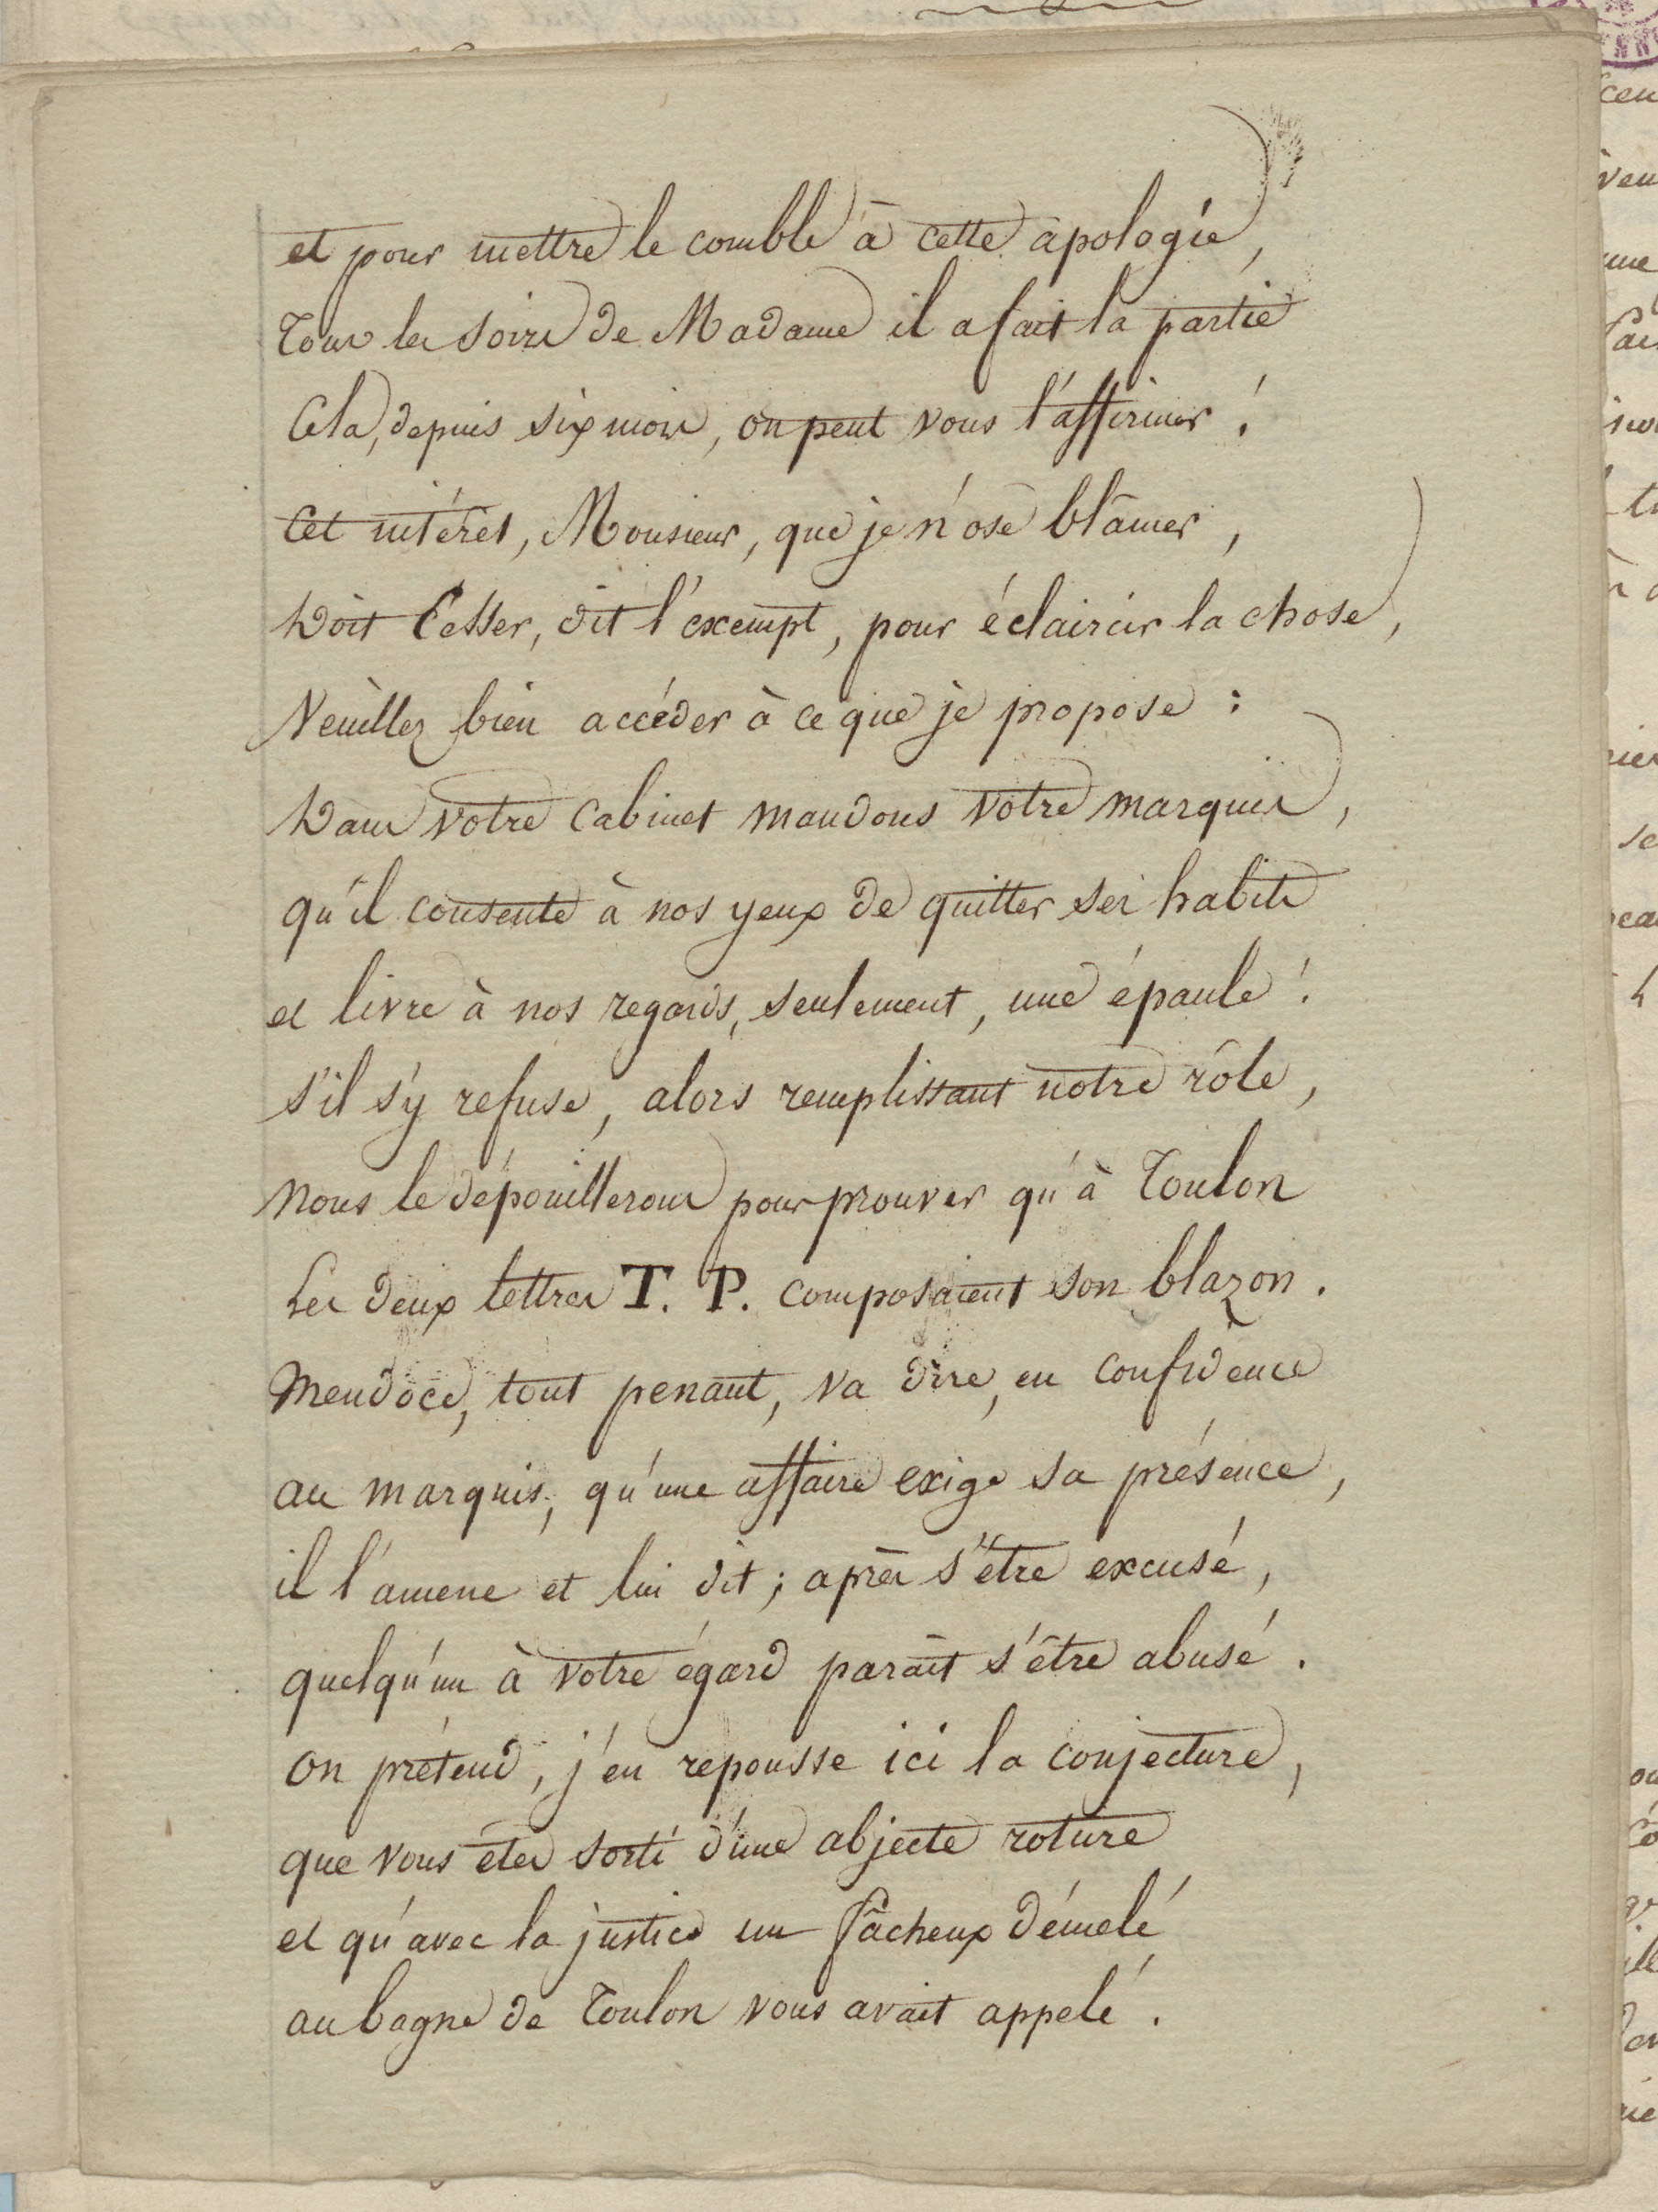 et pour mettre le comble à cette apologie,
Tous les soirs de Madame il a fait la partie
Cela, depuis six mois, on peut vous l'affirmer !
Cet intérêt, Monsieur, que je n'ose blâmer,
Doit Cesser, dit l'exempt, pour éclaircir la chose,
Veuillez bien accéder à ce que je propose :
Dans votre Cabinet mandons votre marquis,
qu'il consente à nos yeux de quitter ses habits
et livre à nos regards, seulement, une épaule !
s'il s'y refuse, alors remplissant notre rôle,
Nous le dépouillerons pour prouver qu'à Toulon
Les deux lettres T. P. composaient son blazon.
Mendoce, tout penaut, va dire, en confidence
au marquis, qu'une affaire exige sa présence,
il l'amene et lui dit ; après s'être excusé,
quelqu'un à votre égard parait s'être abusé.
On prétend, j'en repousse ici la conjecture,
que vous êtes sorti d'une abjecte roture
et qu'avec la justice un fâcheux démelé
au bagne de Toulon vous avait appelé.